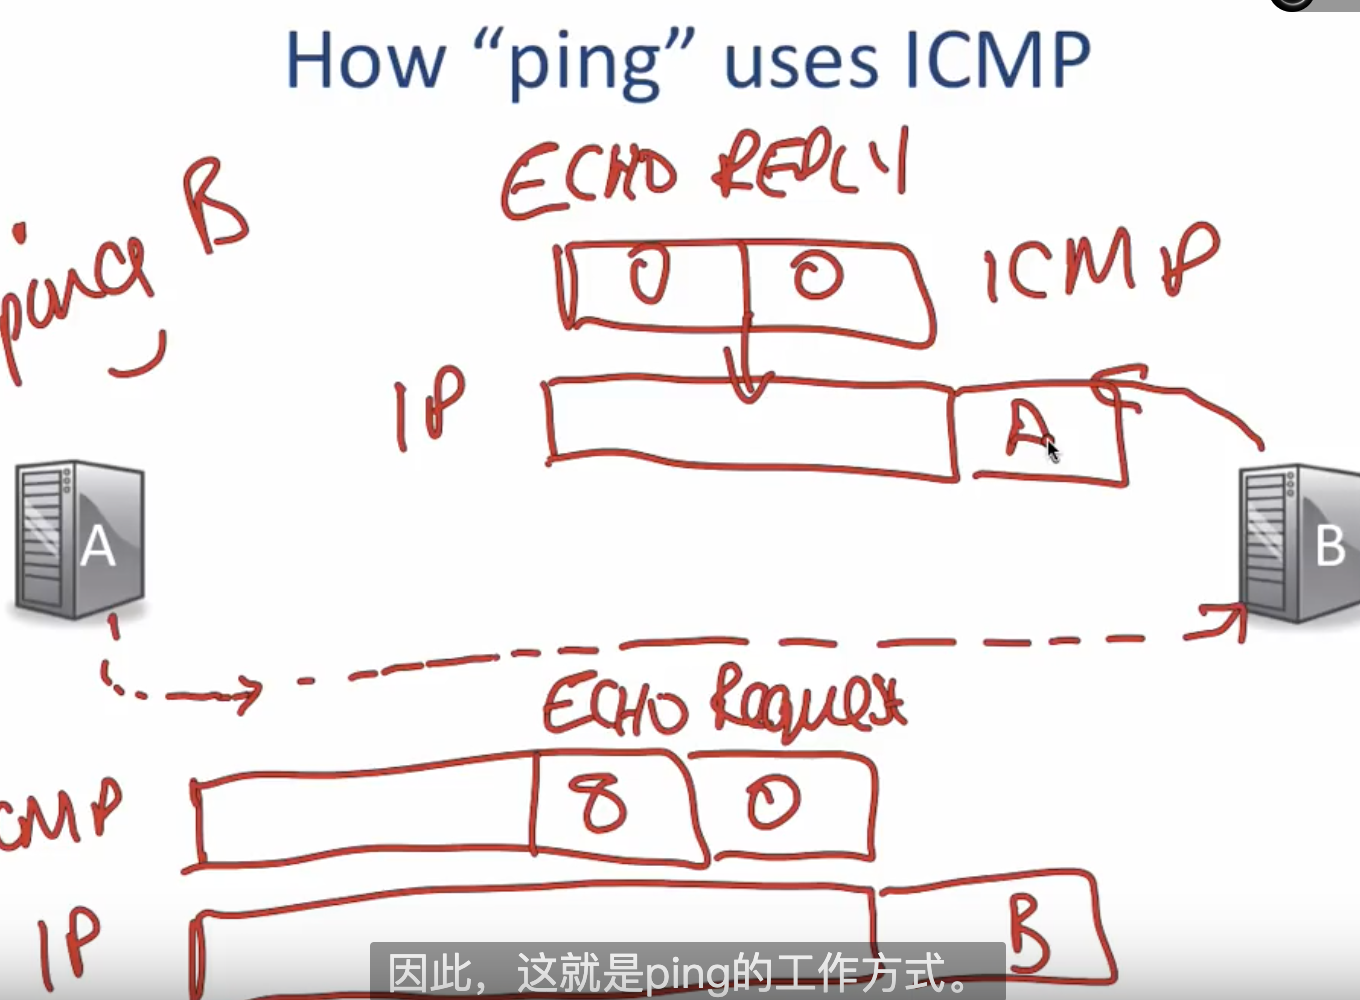 How “ping” uses ICMP
ECHO REPLY
ping B
0 0 ICMP
IP A
A
B
ECHO Request
CMP 8 0
IP B
因此，这就是ping的工作方式。